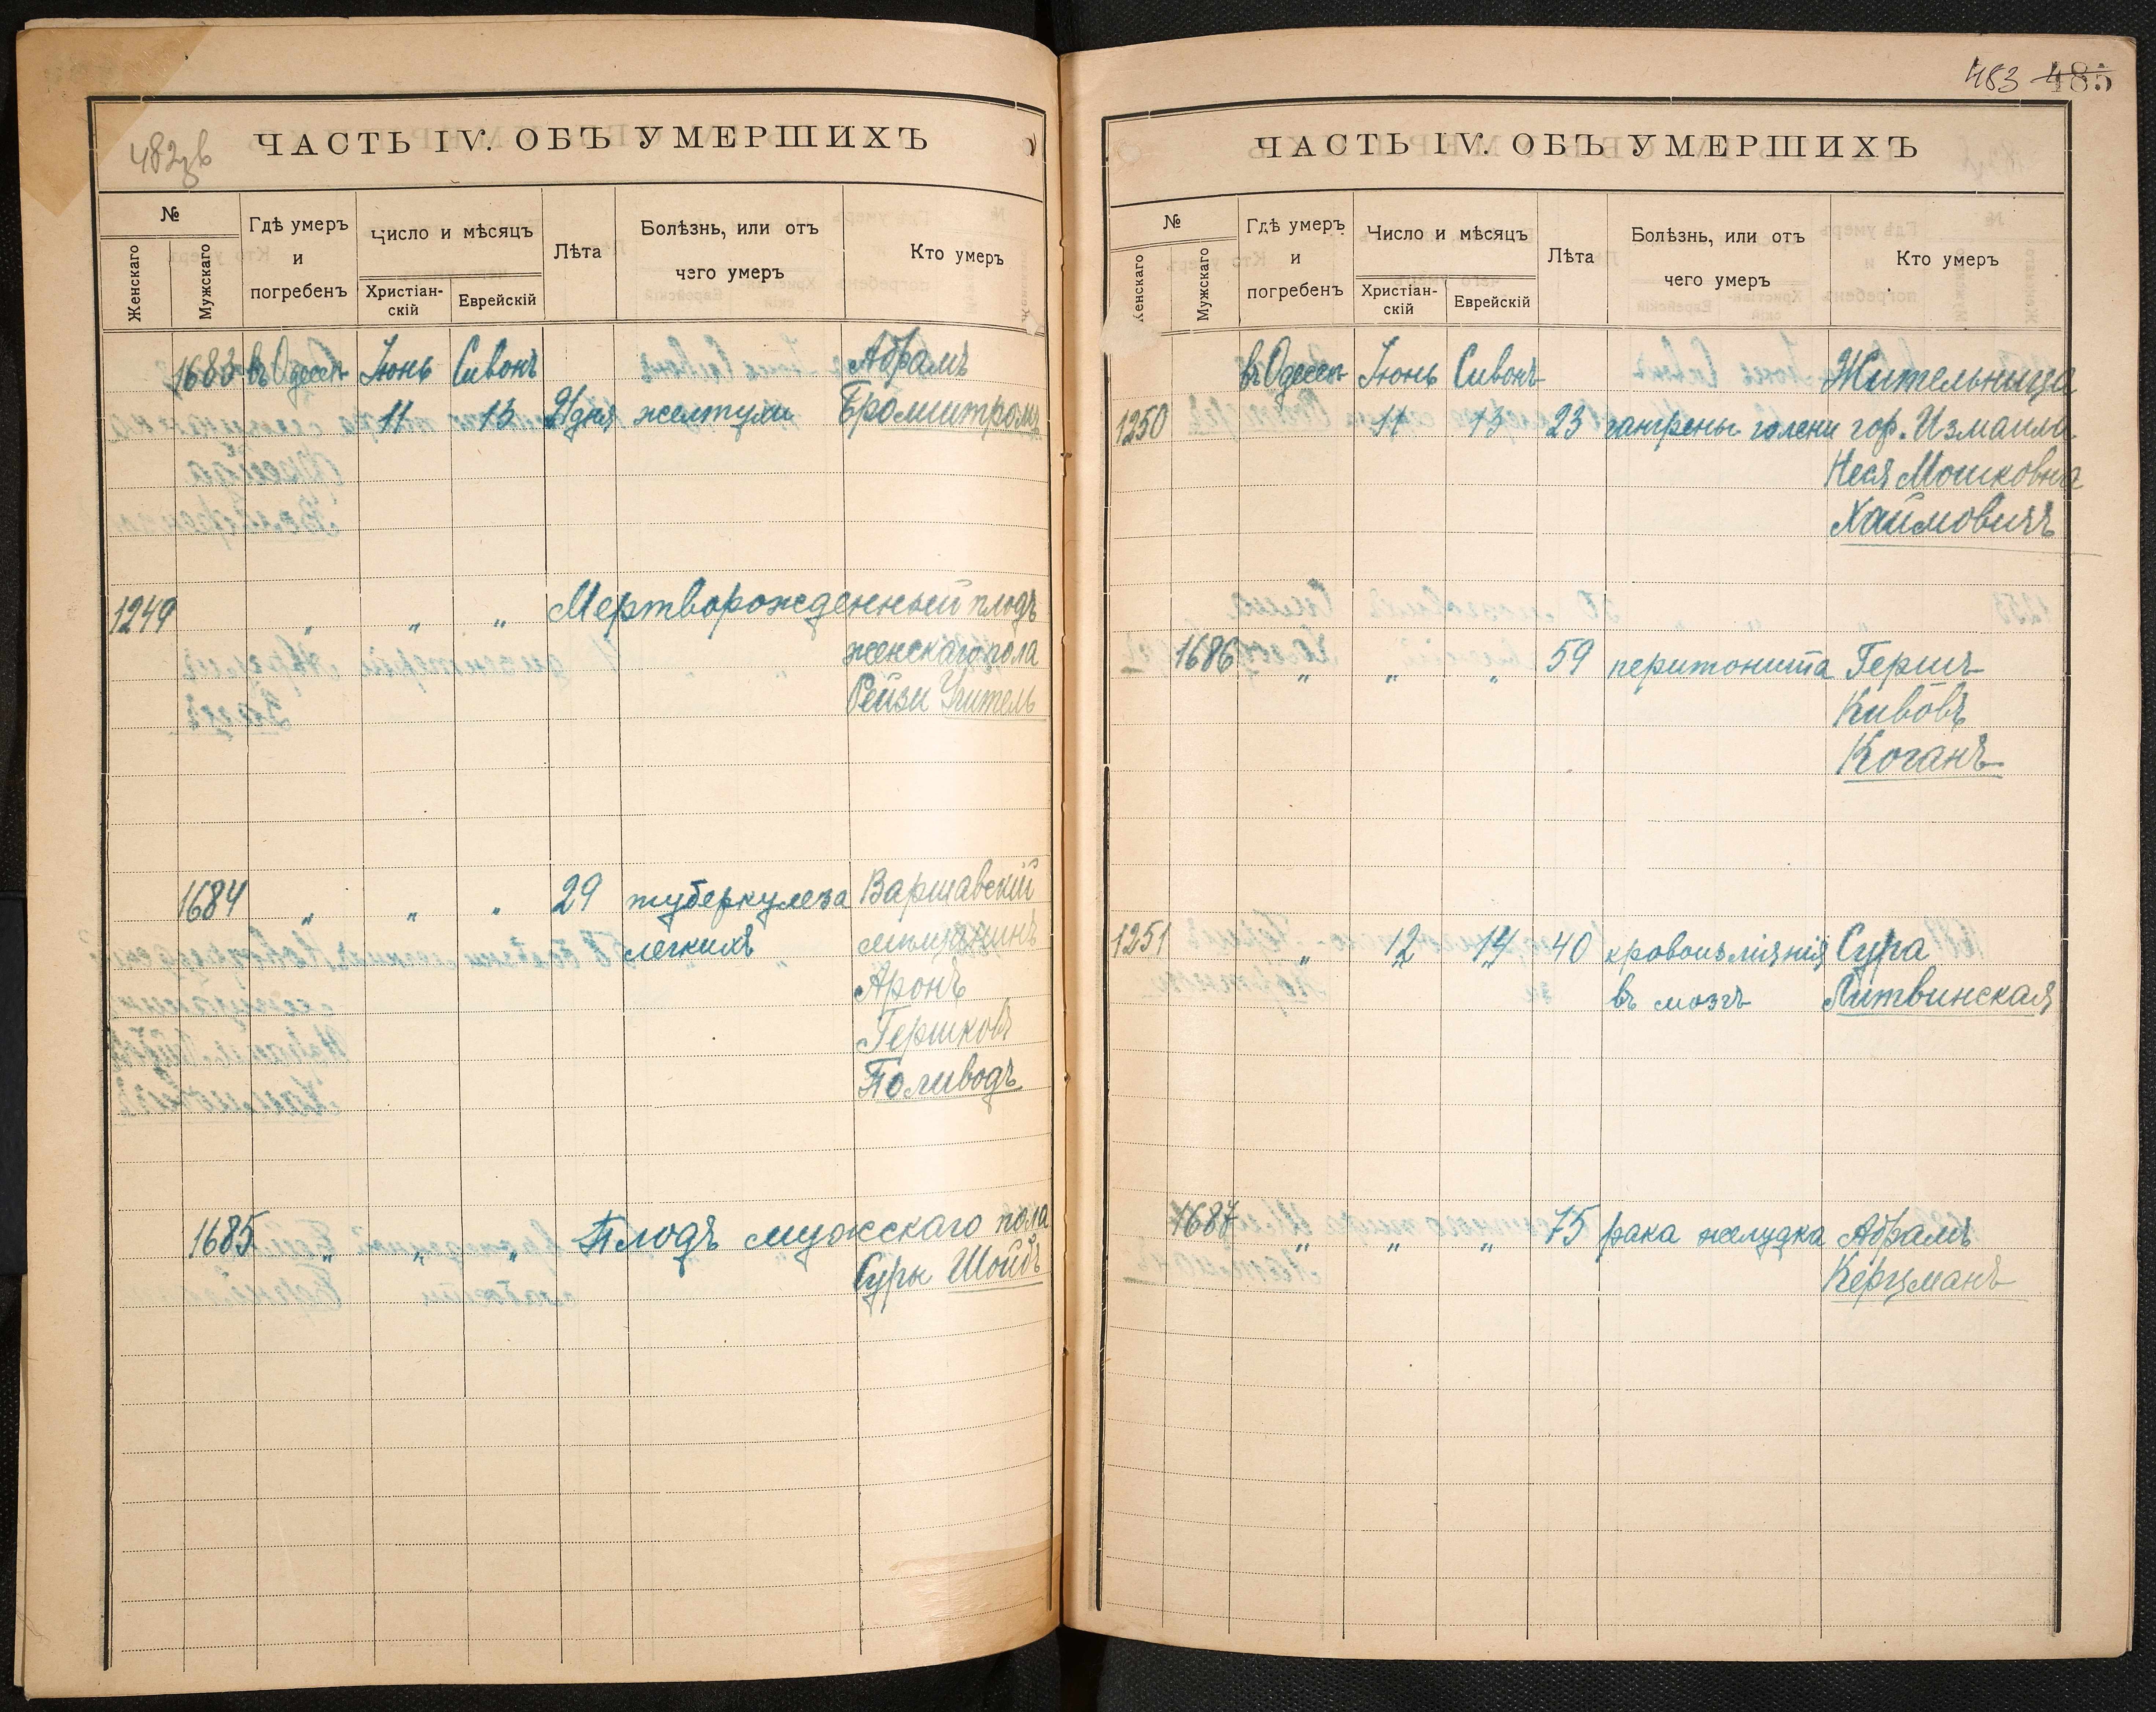 482зв
ЧАСТЬ IV. ОБЪ УМЕРШИХЪ
№
Женскаго
Мужскаго
Гдѣ умеръ
и
погребенъ
Число и мѣсяцъ
Христіан-
скій
Еврейскій
Лѣта
Болѣзнь, или отъ
чего умеръ
Кто умеръ
1683 въ Одессѣ Іюнь Сивонъ Абрамъ
11 13 21 дня желтухи Бромштромъ
1249 " " " Мертворожденный плодъ
женскаго пола
Рейзи Учитель
1684 " " " 29 туберкулеза Варшавскій
легкихъ мѣщанинъ
Аронъ
Гершковъ
Поливодъ
1685 " " " Плодъ мужскаго пола
Суры Шойбъ
483 485
ЧАСТЬ IV. ОБЪ УМЕРШИХЪ
№
Женскаго
Мужскаго
Гдѣ умеръ
и
погребенъ
Число и мѣсяцъ
Христіан-
скій
Еврейскій
Лѣта
Болѣзнь, или отъ
чего умеръ
Кто умеръ
въ Одессѣ Іюнь Сивонъ Жительница
1250 11 13 23 гангрены голени гор. Измаила
Неся Мошковна
Хаимовичъ
1686 " " " 59 перитонита Гершъ
Кивовъ
Коганъ
1251 " 12 14 40 кровоизліянія Сура
въ мозгъ Литвинская
1687 " " " 75 рака желудка Абрамъ
Керцманъ